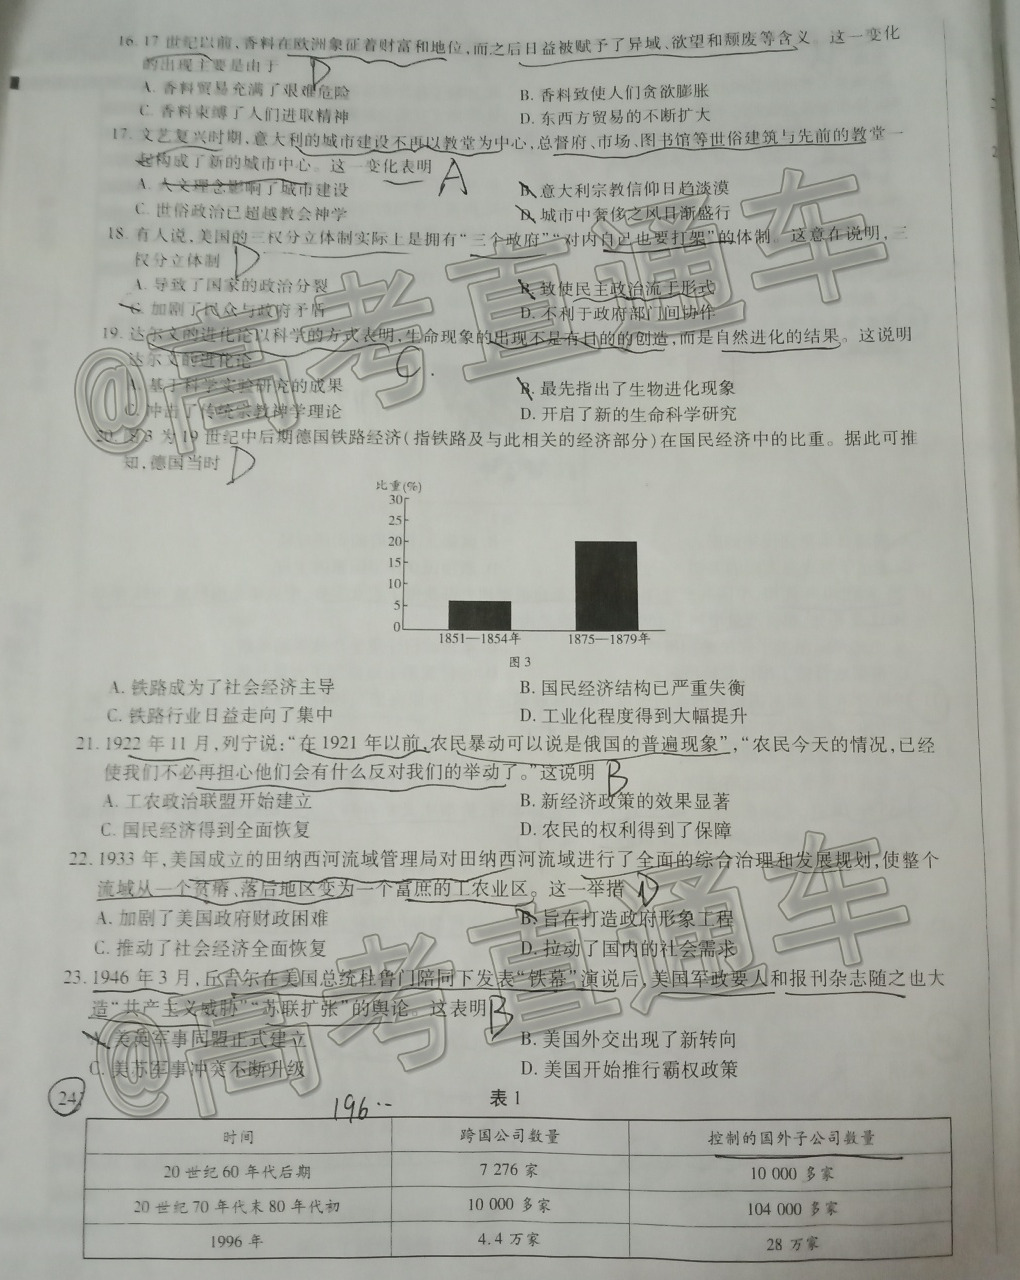 16. 17 世纪以前,香料在欧洲象征着财富和地位,而之后日益被赋予了异域、欲望和颓废等含义。这一变化
的出现主要是由于 D
A. 香料贸易充满了艰难危险 B. 香料致使人们贪欲膨胀
C. 香料束缚了人们进取精神 D. 东西方贸易的不断扩大
17. 文艺复兴时期,意大利的城市建设不再以教堂为中心,总督府、市场、图书馆等世俗建筑与先前的教堂一
起构成了新的城市中心。这一变化表明 A
A. 人文理念影响了城市建设 B. 意大利宗教信仰日趋淡漠
C. 世俗政治已超越教会神学 D. 城市中奢侈之风日渐盛行
18. 有人说,美国的三权分立体制实际上是拥有“三个政府”“对内自己也要打架”的体制。这意在说明,三
权分立体制 D
A. 导致了国家的政治分裂 B. 致使民主政治流于形式
C. 加剧了民众与政府矛盾 D. 不利于政府部门间协作
19. 达尔文的进化论以科学的方式表明,生命现象的出现不是有目的的创造,而是自然进化的结果。这说明
达尔文的进化论 C.
A. 基于科学实验研究的成果 B. 最先指出了生物进化现象
C. 冲击了传统宗教神学理论 D. 开启了新的生命科学研究
20. 图 3 为 19 世纪中后期德国铁路经济(指铁路及与此相关的经济部分)在国民经济中的比重。据此可推
知,德国当时 D
比重(%)
30
25
20
15
10
5
0
1851—1854年 1875—1879年
图 3
A. 铁路成为了社会经济主导 B. 国民经济结构已严重失衡
C. 铁路行业日益走向了集中 D. 工业化程度得到大幅提升
21. 1922 年 11 月,列宁说:“在 1921 年以前,农民暴动可以说是俄国的普遍现象”,“农民今天的情况,已经
使我们不必再担心他们会有什么反对我们的举动了。”这说明 B
A. 工农政治联盟开始建立 B. 新经济政策的效果显著
C. 国民经济得到全面恢复 D. 农民的权利得到了保障
22. 1933 年,美国成立的田纳西河流域管理局对田纳西河流域进行了全面的综合治理和发展规划,使整个
流域从一个贫瘠、落后地区变为一个富庶的工农业区。这一举措 D
A. 加剧了美国政府财政困难 B. 旨在打造政府形象工程
C. 推动了社会经济全面恢复 D. 拉动了国内的社会需求
23. 1946 年 3 月,丘吉尔在美国总统杜鲁门陪同下发表“铁幕”演说后,美国军政要人和报刊杂志随之也大
造“共产主义威胁”“苏联扩张”的舆论。这表明 B
A. 美英军事同盟正式建立 B. 美国外交出现了新转向
C. 美苏军事冲突不断升级 D. 美国开始推行霸权政策
24. 196·· 表 1
时间 跨国公司数量 控制的国外子公司数量
20 世纪 60 年代后期 7 276 家 10 000 多家
20 世纪 70 年代末 80 年代初 10 000 多家 104 000 多家
1996 年 4.4 万家 28 万家
@高考直通车
@高考直通车